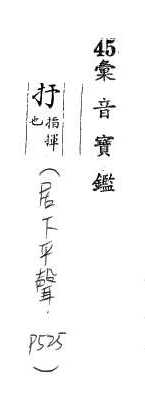 45彙音寶鑑
扜 指揮也 (居下平聲. P525)